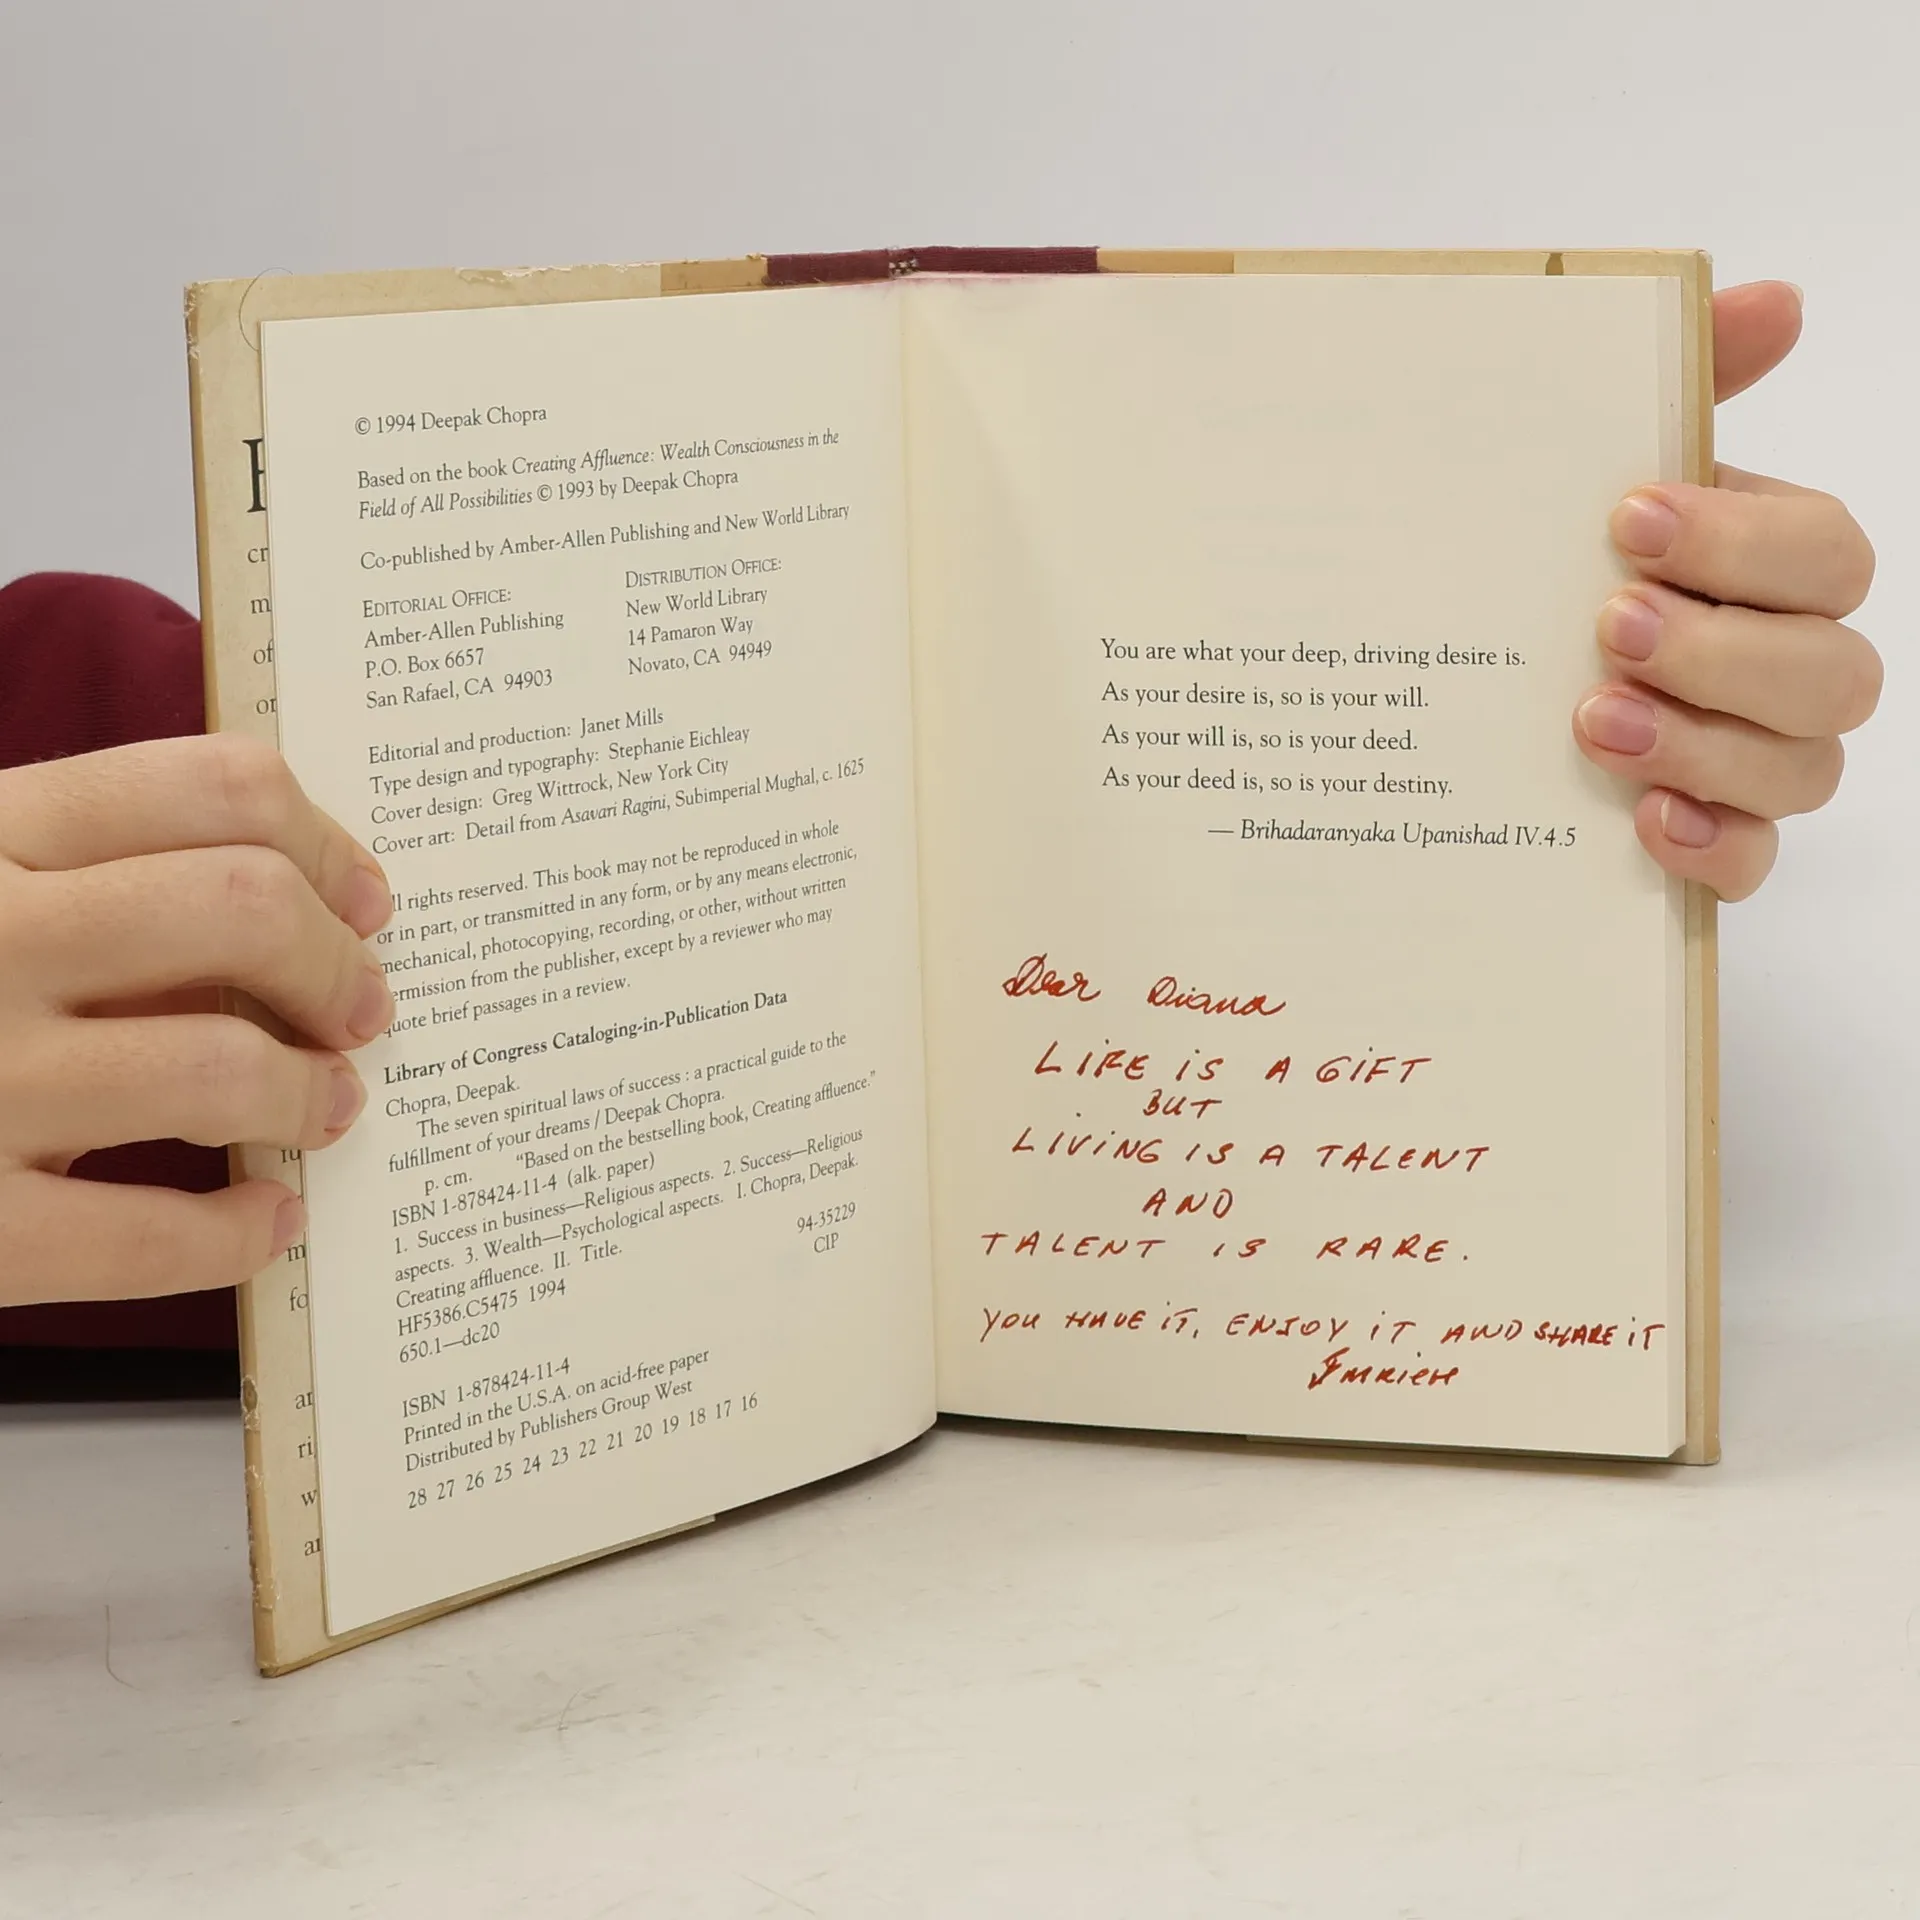 © 1994 Deepak Chopra
Based on the book Creating Affluence: Wealth Consciousness in the
Field of All Possibilities © 1993 by Deepak Chopra
Co-published by Amber-Allen Publishing and New World Library
EDITORIAL OFFICE:
Amber-Allen Publishing
P.O. Box 6657
San Rafael, CA 94903
DISTRIBUTION OFFICE:
New World Library
14 Pamaron Way
Novato, CA 94949
Editorial and production: Janet Mills
Type design and typography: Stephanie Eichleay
Cover design: Greg Wittrock, New York City
Cover art: Detail from Asavari Ragini, Subimperial Mughal, c. 1625
ll rights reserved. This book may not be reproduced in whole
or in part, or transmitted in any form, or by any means electronic,
mechanical, photocopying, recording, or other, without written
ermission from the publisher, except by a reviewer who may
quote brief passages in a review.
Library of Congress Cataloging-in-Publication Data
Chopra, Deepak.
The seven spiritual laws of success : a practical guide to the
fulfillment of your dreams / Deepak Chopra.
p. cm. "Based on the bestselling book, Creating affluence."
ISBN 1-878424-11-4 (alk. paper)
1. Success in business—Religious aspects. 2. Success—Religious
aspects. 3. Wealth—Psychological aspects. I. Chopra, Deepak.
Creating affluence. II. Title.
HF5386.C5475 1994
650.1—dc20
94-35229
CIP
ISBN 1-878424-11-4
Printed in the U.S.A. on acid-free paper
Distributed by Publishers Group West
28 27 26 25 24 23 22 21 20 19 18 17 16
You are what your deep, driving desire is.
As your desire is, so is your will.
As your will is, so is your deed.
As your deed is, so is your destiny.
— Brihadaranyaka Upanishad IV.4.5
Dear Diana
LIFE iS A GiFT
BUT
LIVING IS A TALENT
AND
TALENT IS RARE.
YOU HAVE iT, ENJOY iT AND SHARE iT
Imrich